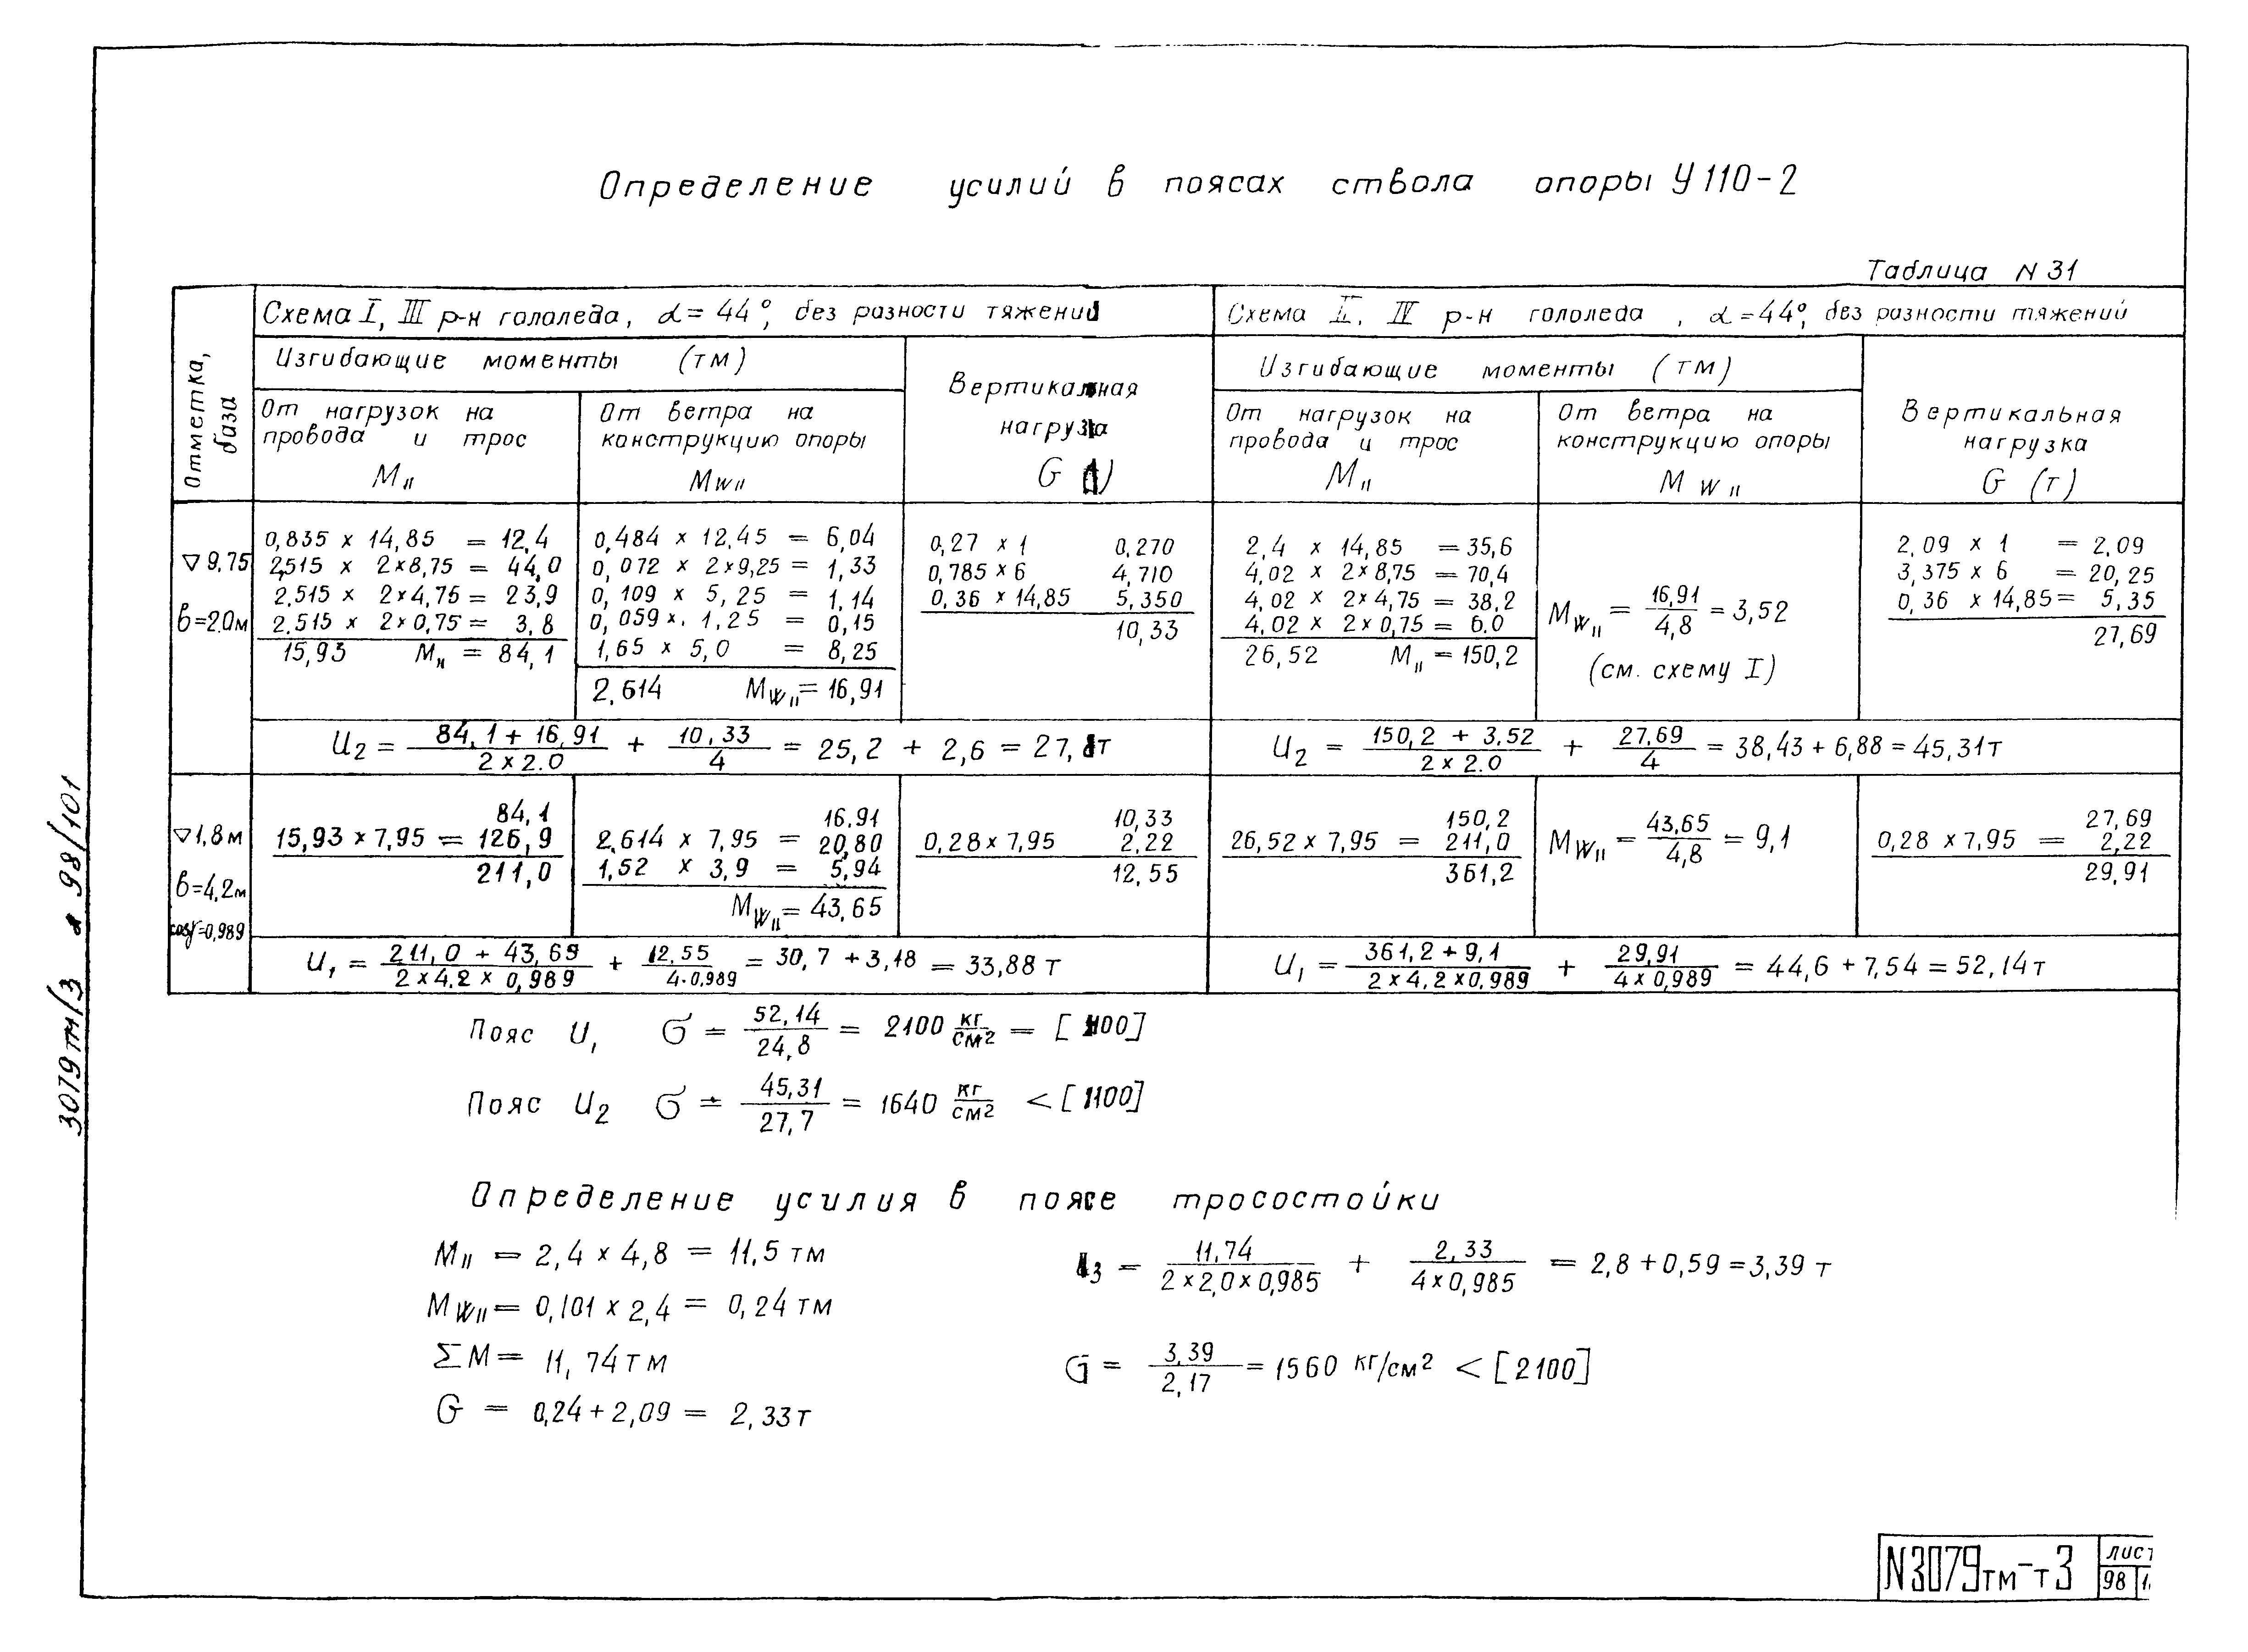 Определение усилий в поясах ствола опоры У110-2
Таблица N 31
Отметка, база
Схема I, III р-н гололеда, α = 44°, без разности тяжений
Изгибающие моменты (тм)
От нагрузок на
провода и трос
M||
От ветра на
конструкцию опоры
MW||
Вертикальная
нагрузка
G
Схема II, IV р-н гололеда, α = 44°, без разности тяжений
Изгибающие моменты (тм)
От нагрузок на
провода и трос
M||
От ветра на
конструкцию опоры
M W||
Вертикальная
нагрузка
G (т)
▽ 9,75
в=2.0м
0,835 x 14,85 = 12,4
2,515 x 2×8,75 = 44,0
2,515 x 2×4,75 = 23,9
2,515 x 2×0,75 = 3,8
15,93 M|| = 84,1
0,484 x 12,45 = 6,04
0,072 x 2×9,25 = 1,33
0,109 x 5,25 = 1,14
0,059 x 1,25 = 0,15
1,65 x 5,0 = 8,25
2,614 MW|| = 16,91
0,27 x 1 0,270
0,785 x 6 4,710
0,36 x 14,85 5,350
10,33
2,4 x 14,85 = 35,6
4,02 x 2×8,75 = 70,4
4,02 x 2×4,75 = 38,2
4,02 x 2×0,75 = 6.0
26,52 M|| = 150,2
MW|| = 16,91/4,8 = 3,52
(см. схему I)
2,09 x 1 = 2,09
3,375 x 6 = 20,25
0,36 x 14,85 = 5,35
27,69
U2 = (84,1 + 16,91)/(2 x 2.0) + 10,33/4 = 25,2 + 2,6 = 27,8т
U2 = (150,2 + 3,52)/(2 x 2.0) + 27,69/4 = 38,43 + 6,88 = 45,31т
▽1,8м
в=4,2м
cosγ=0,989
84,1
15,93 x 7,95 = 126,9
211,0
16,91
2,614 x 7,95 = 20,80
1,52 x 3,9 = 5,94
MW|| = 43,65
10,33
0,28 x 7,95 2,22
12,55
150,2
26,52 x 7,95 = 211,0
361,2
MW|| = 43,65/4,8 = 9,1
27,69
0,28 x 7,95 = 2,22
29,91
U1 = (211,0 + 43,69)/(2 x 4,2 x 0,989) + 12,55/(4·0,989) = 30,7 + 3,18 = 33,88 т
U1 = (361,2 + 9,1)/(2 x 4,2 x 0,989) + 29,91/(4 x 0,989) = 44,6 + 7,54 = 52,14т
Пояс U1 σ = 52,14/24,8 = 2100 кг/см2 =
Пояс U2 σ = 45,31/27,7 = 1640 кг/см2 <
Определение усилия в поясе тросостойки
M|| = 2,4 x 4,8 = 11,5 тм
MW|| = 0,101 x 2,4 = 0,24 тм
ΣM = 11,74 тм
G = 0,24 + 2,09 = 2,33т
U3 = 11,74/(2 x 2,0 x 0,985) + 2,33/(4 x 0,985) = 2,8 + 0,59 = 3,39 т
σ = 3,39/2,17 = 1560 кг/см2 < [2100]
3079тм/3 л 98/101
N3079тм-т3
лист
98